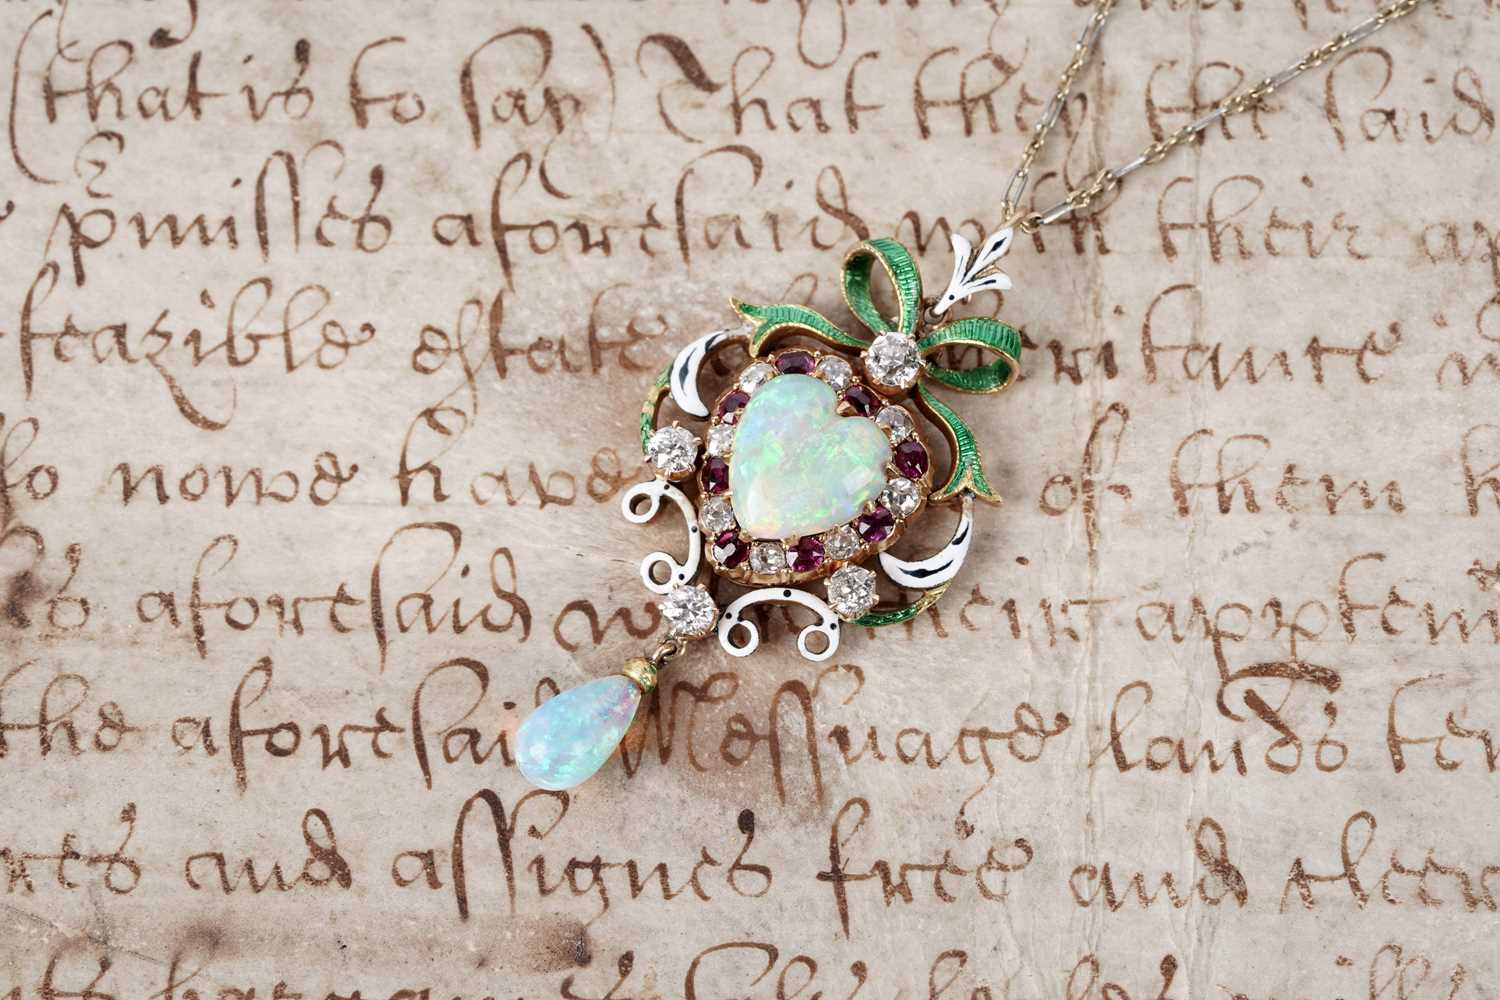 (that is to say) That they the said
p̱misses aforesaid with their ap
feazible estate inheritance
to nowe have of them h
aforesaid with their appten
the aforesaid Messuage lands ten
and assignes free and cleer